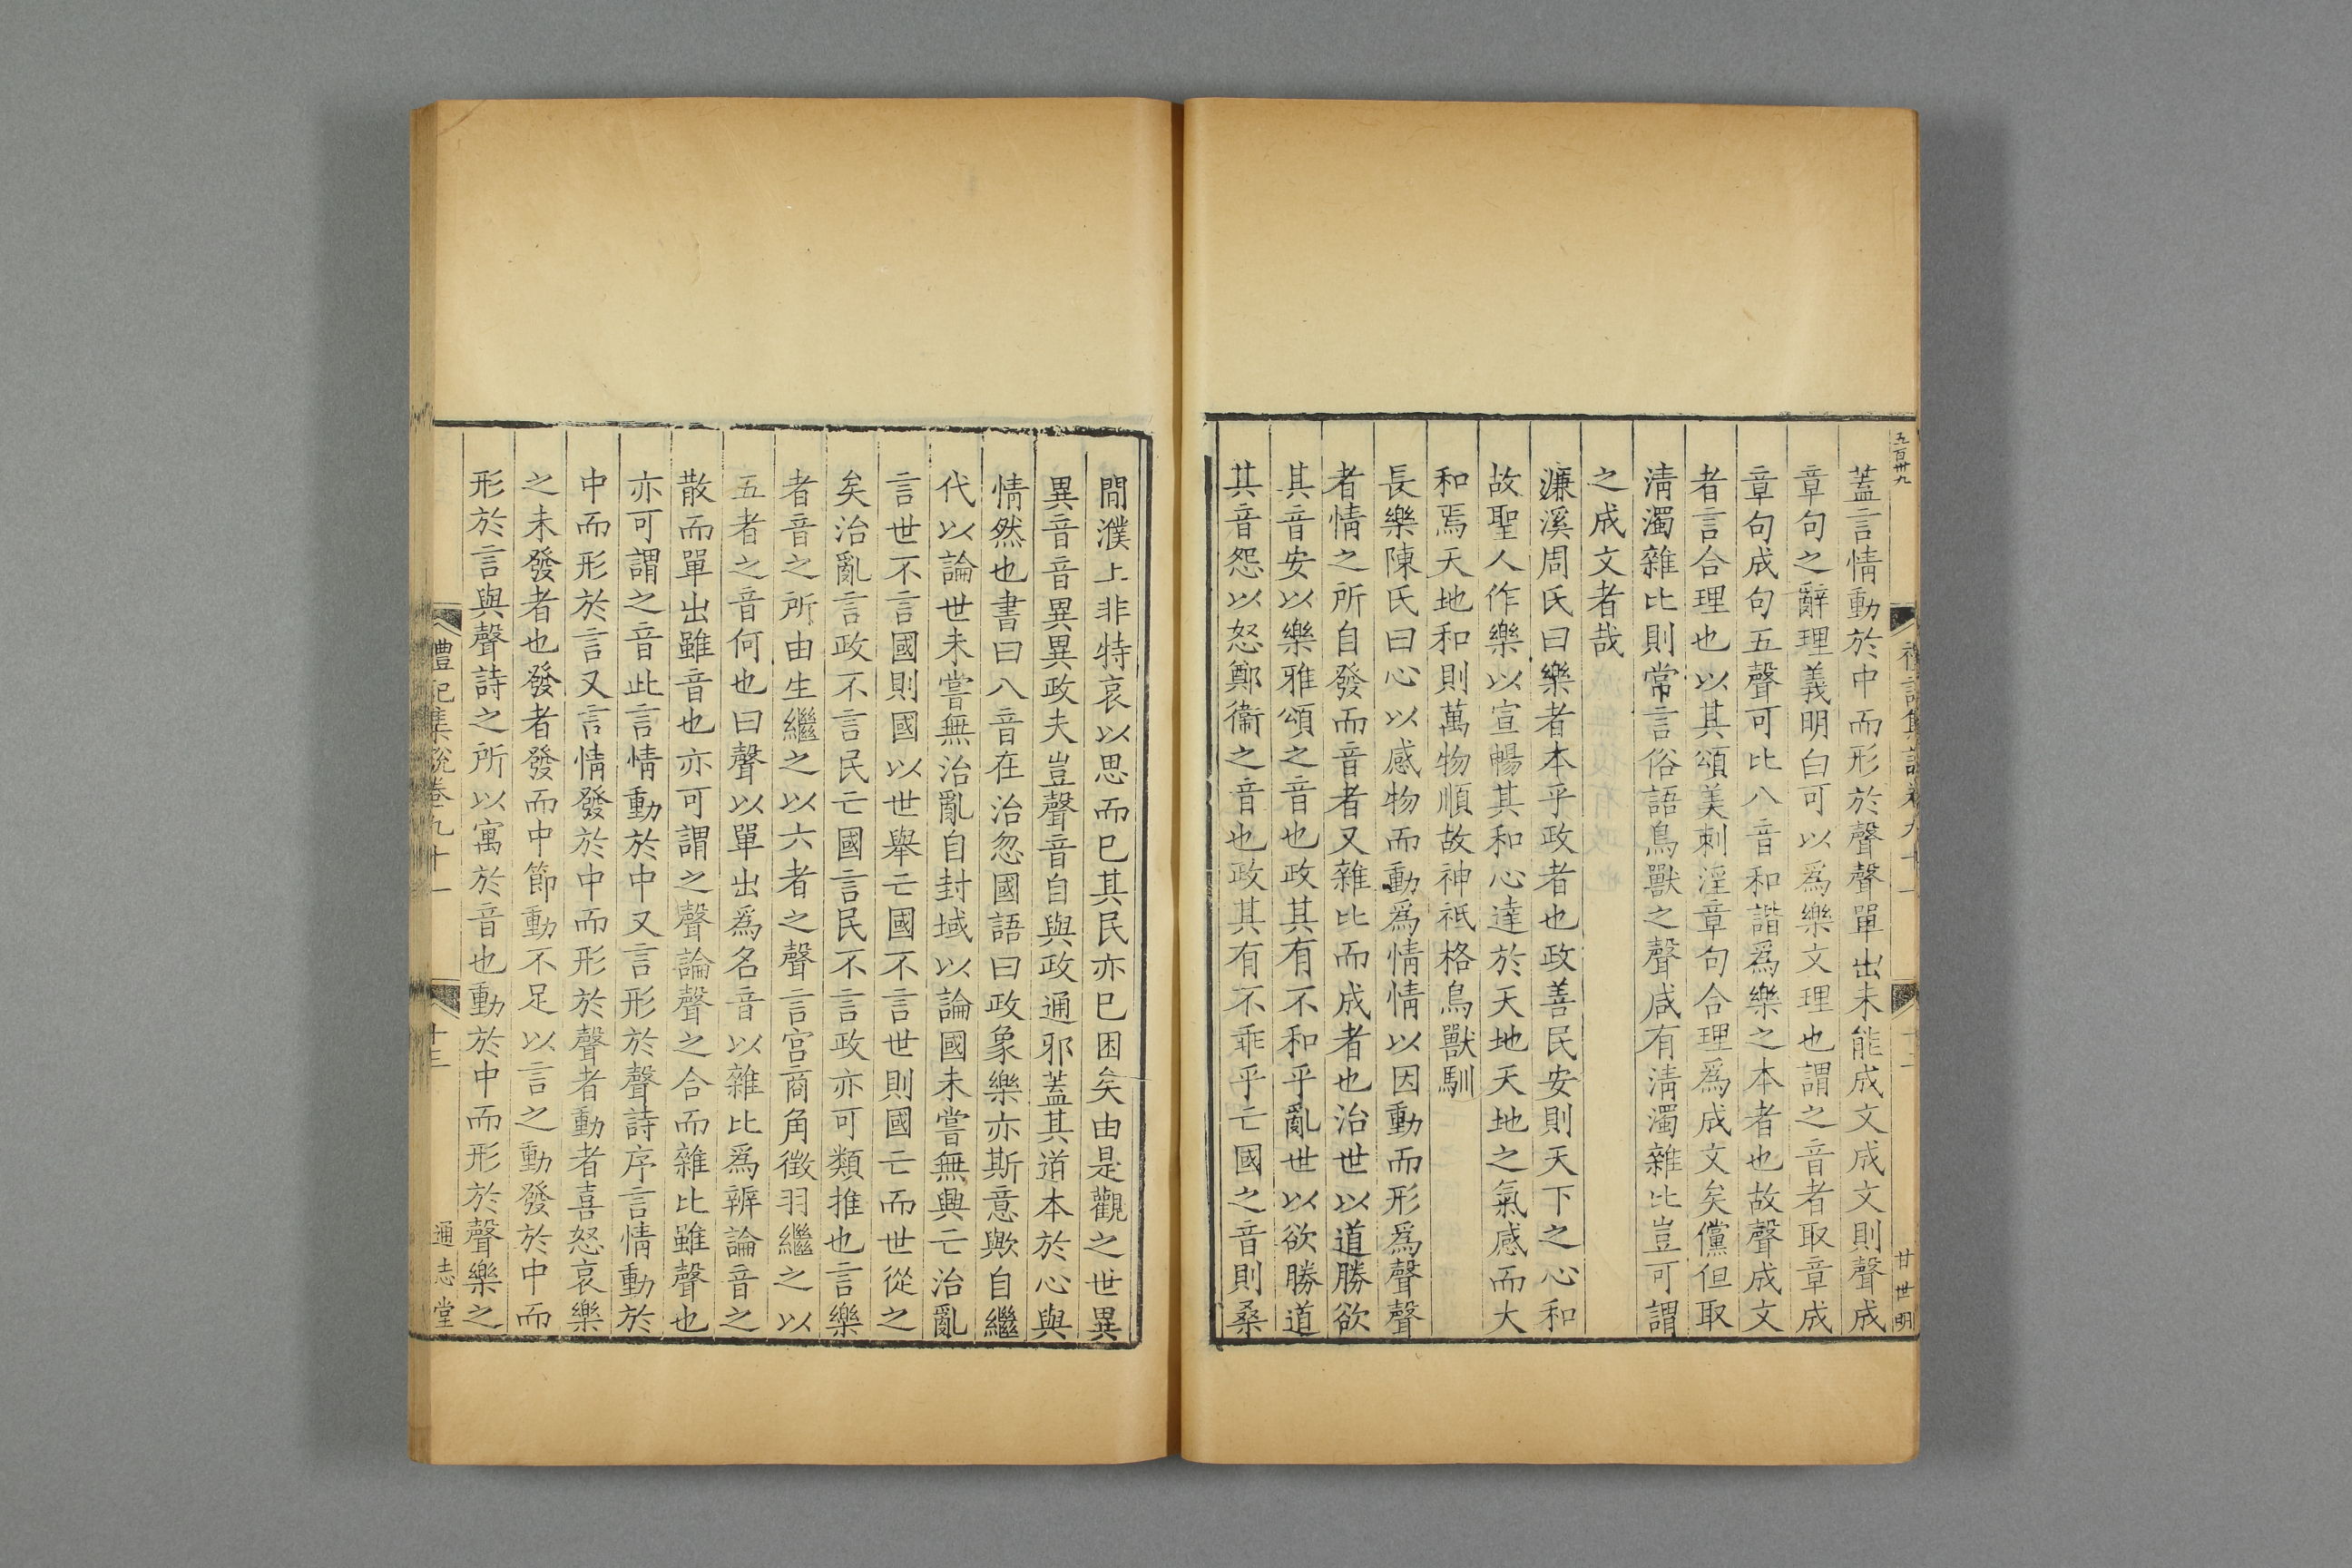 五百卅九
禮記集說卷九十一
十二
甘世明
蓋言情動於中而形於聲聲單出未能成文成文則聲成
章句之辭理義明白可以爲樂文理也謂之音者取章成
章句成句五聲可比八音和諧爲樂之本者也故聲成文
者言合理也以其頌美刺淫章句合理爲成文矣儻但取
淸濁雜比則常言俗語鳥獸之聲咸有淸濁雜比豈可謂
之成文者哉
濂溪周氏曰樂者本乎政者也政善民安則天下之心和
故聖人作樂以宣暢其和心達於天地天地之氣感而大
和焉天地和則萬物順故神祇格鳥獸馴
長樂陳氏曰心以感物而動爲情情以因動而形爲聲聲
者情之所自發而音者又雜比而成者也治世以道勝欲
其音安以樂雅頌之音也政其有不和乎亂世以欲勝道
其音怨以怒鄭衞之音也政其有不乖乎亡國之音則桑
閒濮上非特哀以思而已其民亦已困矣由是觀之世異
異音音異異政夫豈聲音自與政通邪蓋其道本於心與
情然也書曰八音在治忽國語曰政象樂亦斯意歟自繼
代以論世未嘗無治亂自封域以論國未嘗無興亡治亂
言世不言國則國以世舉亡國不言世則國亡而世從之
矣治亂言政不言民亡國言民不言政亦可類推也言樂
者音之所由生繼之以六者之聲言宮商角徵羽繼之以
五者之音何也曰聲以單出爲名音以雜比爲辨論音之
散而單出雖音也亦可謂之聲論聲之合而雜比雖聲也
亦可謂之音此言情動於中又言形於聲詩序言情動於
中而形於言又言情發於中而形於聲者動者喜怒哀樂
之未發者也發者發而中節動不足以言之動發於中而
形於言與聲詩之所以寓於音也動於中而形於聲樂之
禮記集說卷九十一
十三
通志堂